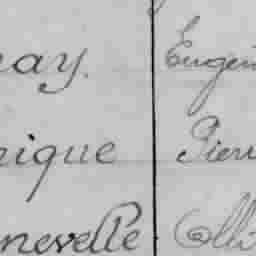 nay. Eugén
nique Pierr
nevelle Olli